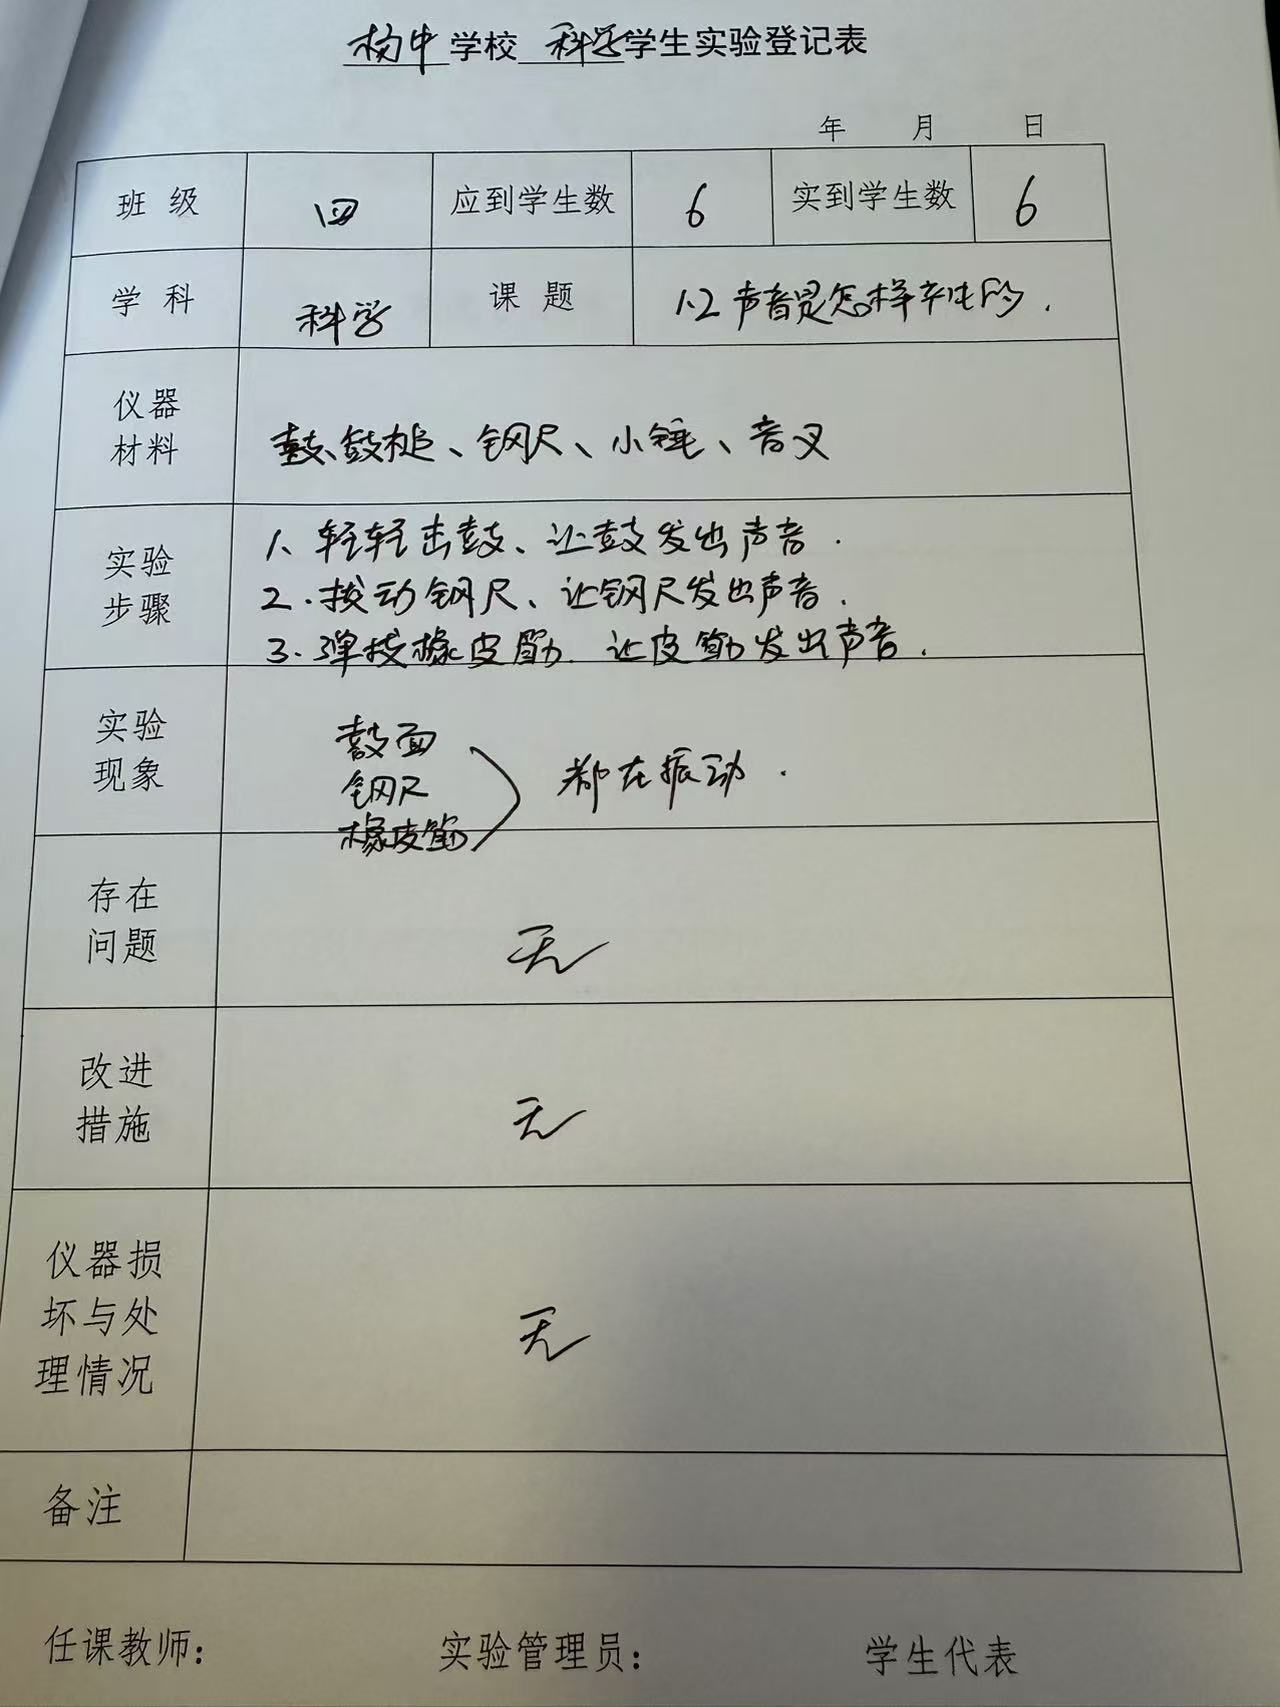 杨中学校 科学学生实验登记表
年 月 日
班级 四 应到学生数 6 实到学生数 6
学科 科学 课题 1.2 声音是怎样产生的.
仪器
材料
鼓、鼓槌、钢尺、小锤、音叉
实验
步骤
1、轻轻击鼓、让鼓发出声音.
2.拨动钢尺、让钢尺发出声音.
3.弹拨橡皮筋. 让皮筋发出声音.
实验
现象
鼓面
钢尺
橡皮筋
都在振动.
存在
问题
无
改进
措施
无
仪器损
坏与处
理情况
无
备注
任课教师: 实验管理员: 学生代表